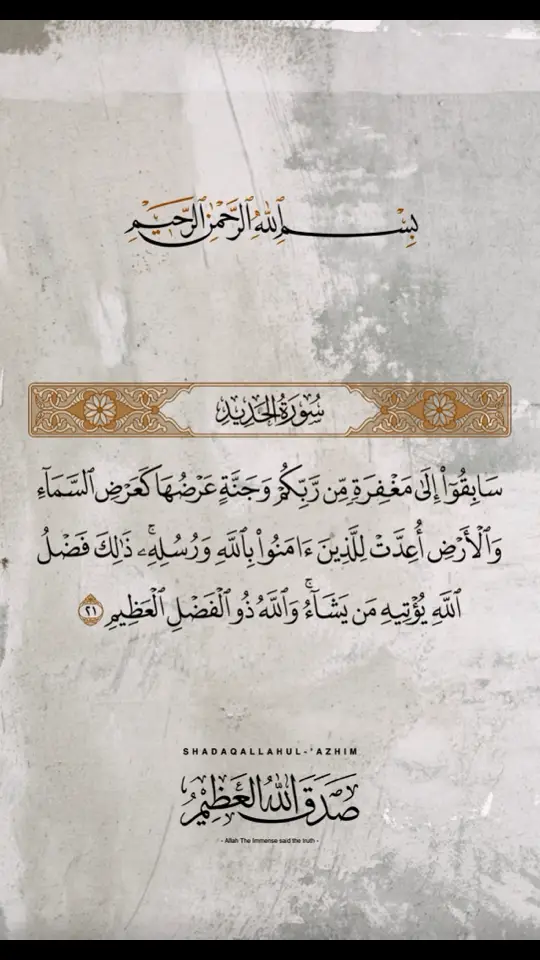 بِسْمِ ٱللَّهِ ٱلرَّحْمَٰنِ ٱلرَّحِيمِ
سُورَةُ الحَدِيدِ
سَابِقُوٓا۟ إِلَىٰ مَغْفِرَةٍ مِّن رَّبِّكُمْ وَجَنَّةٍ عَرْضُهَا كَعَرْضِ ٱلسَّمَآءِ
وَٱلْأَرْضِ أُعِدَّتْ لِلَّذِينَ ءَامَنُوا۟ بِٱللَّهِ وَرُسُلِهِۦ ۚ ذَٰلِكَ فَضْلُ
ٱللَّهِ يُؤْتِيهِ مَن يَشَآءُ ۚ وَٱللَّهُ ذُو ٱلْفَضْلِ ٱلْعَظِيمِ ٢١
SHADAQALLAHUL-'AZHIM
صَدَقَ اللهُ العَظِيْمُ
- Allah The Immense said the truth -